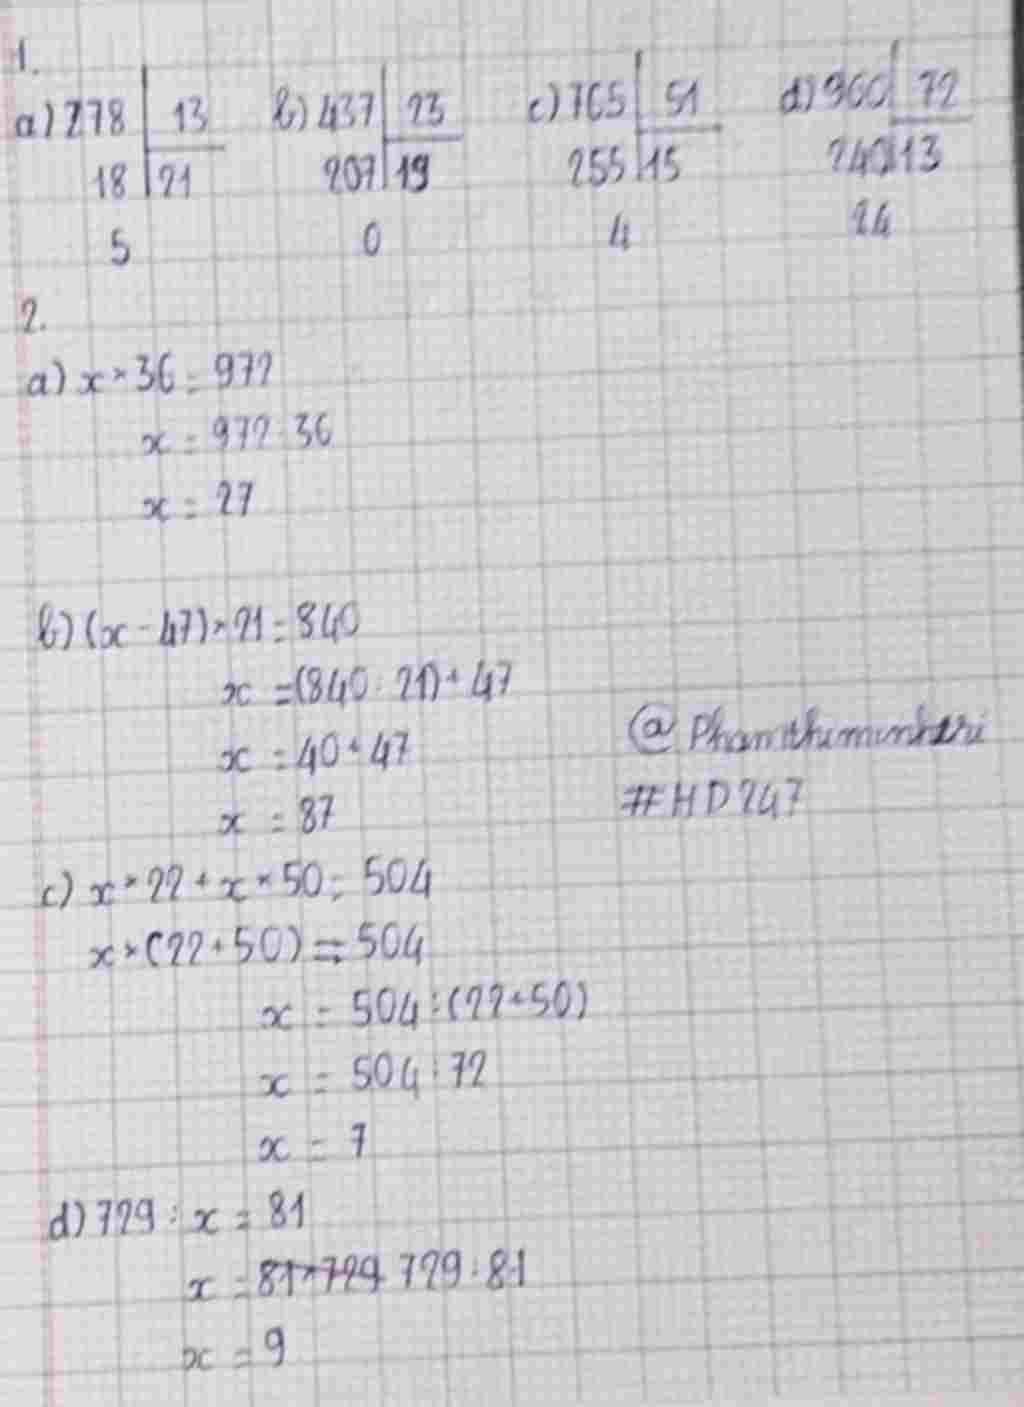 1.
a) 278 | 13 b) 437 | 23 c) 765 | 51 d) 960 | 72
18 | 21 207 | 19 255 | 15 240 | 13
5 0 4 24
2.
a) x × 36 = 972
x = 972 : 36
x = 27
b) (x - 47) × 21 = 840
x = (840 : 21) + 47
x = 40 + 47
x = 87
@
#HD247
c) x × 22 + x × 50 = 504
x × (22 + 50) = 504
x = 504 : (22 + 50)
x = 504 : 72
x = 7
d) 729 : x = 81
x = 81 × 729 729 : 81
x = 9